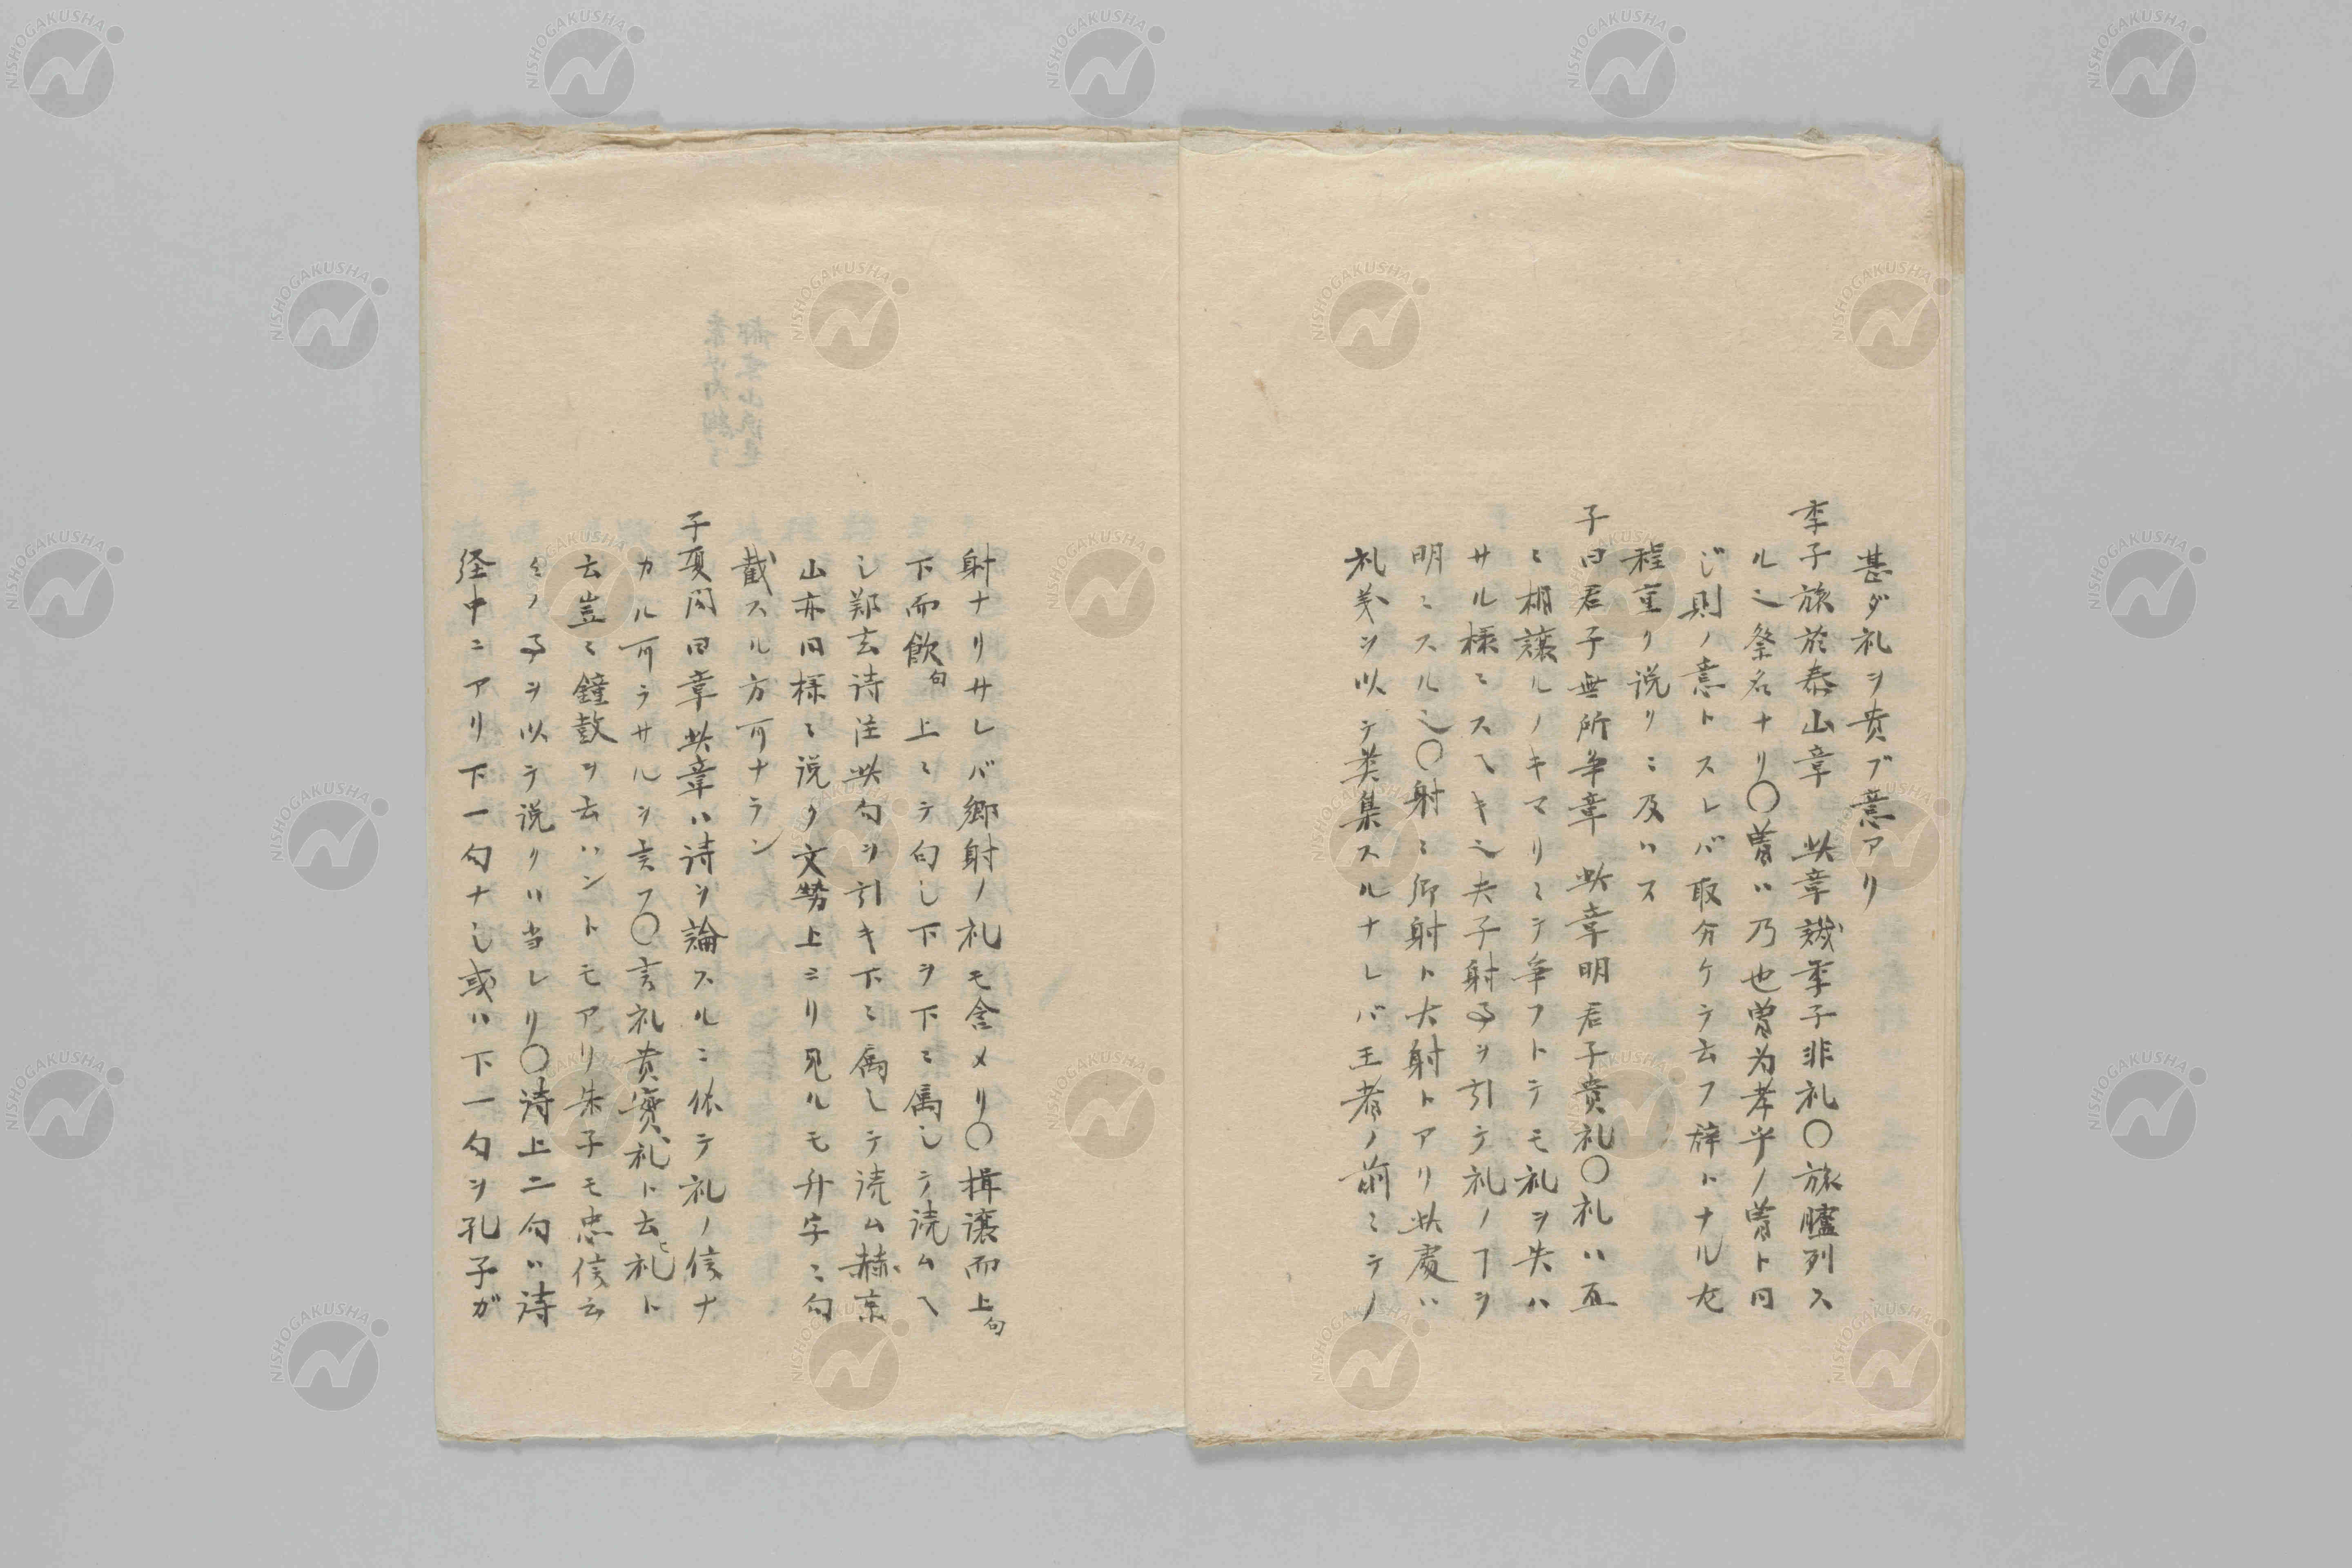 甚ダ礼ヲ貴ブ意アリ
季子旅於泰山章 此章譏季子非礼〇旅臚列ス
ルノ祭名ナリ〇曽ハ乃也曽為孝乎ノ曽ト同
ジ則ノ意トスレバ取分ケテ云フ辞トナル左
程重ク説クニ及ハス
子曰君子無所争章 此章明君子貴礼〇礼ハ互
ニ相譲ルノキマリニテ争フトテモ礼ヲ失ハ
サル様ニスヘキ也夫子射ヿヲ引テ礼ノヿヲ
明ニスル也〇射ニ郷射ト大射トアリ此処ハ
礼義ヲ以テ類集スルナレバ王者ノ前ニテノ
射ナリサレバ郷射ノ礼モ含メリ〇揖譲而上句
下而飲句 上ニテ句シ下ヲ下ニ属シテ読ムヘ
シ鄭玄詩注此句ヲ引キ下ニ属シテ読ム赫京
山亦同様ニ説ク文勢上ヨリ見ルモ升字ニ句
截スル方可ナラン
子夏問曰章此章ハ詩ヲ論スルニ依テ礼ノ信ナ
カル可ラサルヲ言フ〇言礼貴寳礼ト云ヒ礼ト
云豈ニ鐘鼓ヲ云ハントモアリ朱子モ忠信云
々ノヿヲ以テ説クハ当レリ〇詩上二句ハ詩
経中ニアリ下一句ナシ或ハ下一句ヲ孔子ガ